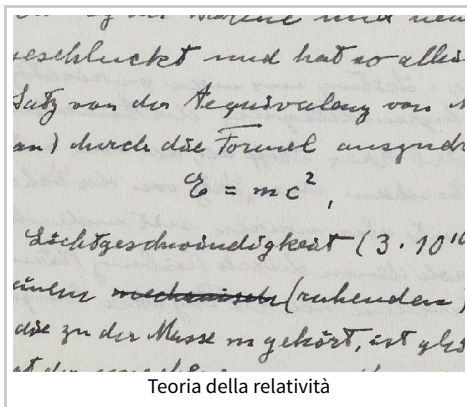 geschluckt und hat so allei
Satz von der Aequivalenz von
an) durch die Formel ausgedr
E = mc²,
Lichtgeschwindigkeit (3.10¹⁰
einem mechanisch (ruhenden)
die zu der Masse m gehört, ist gle
Teoria della relatività